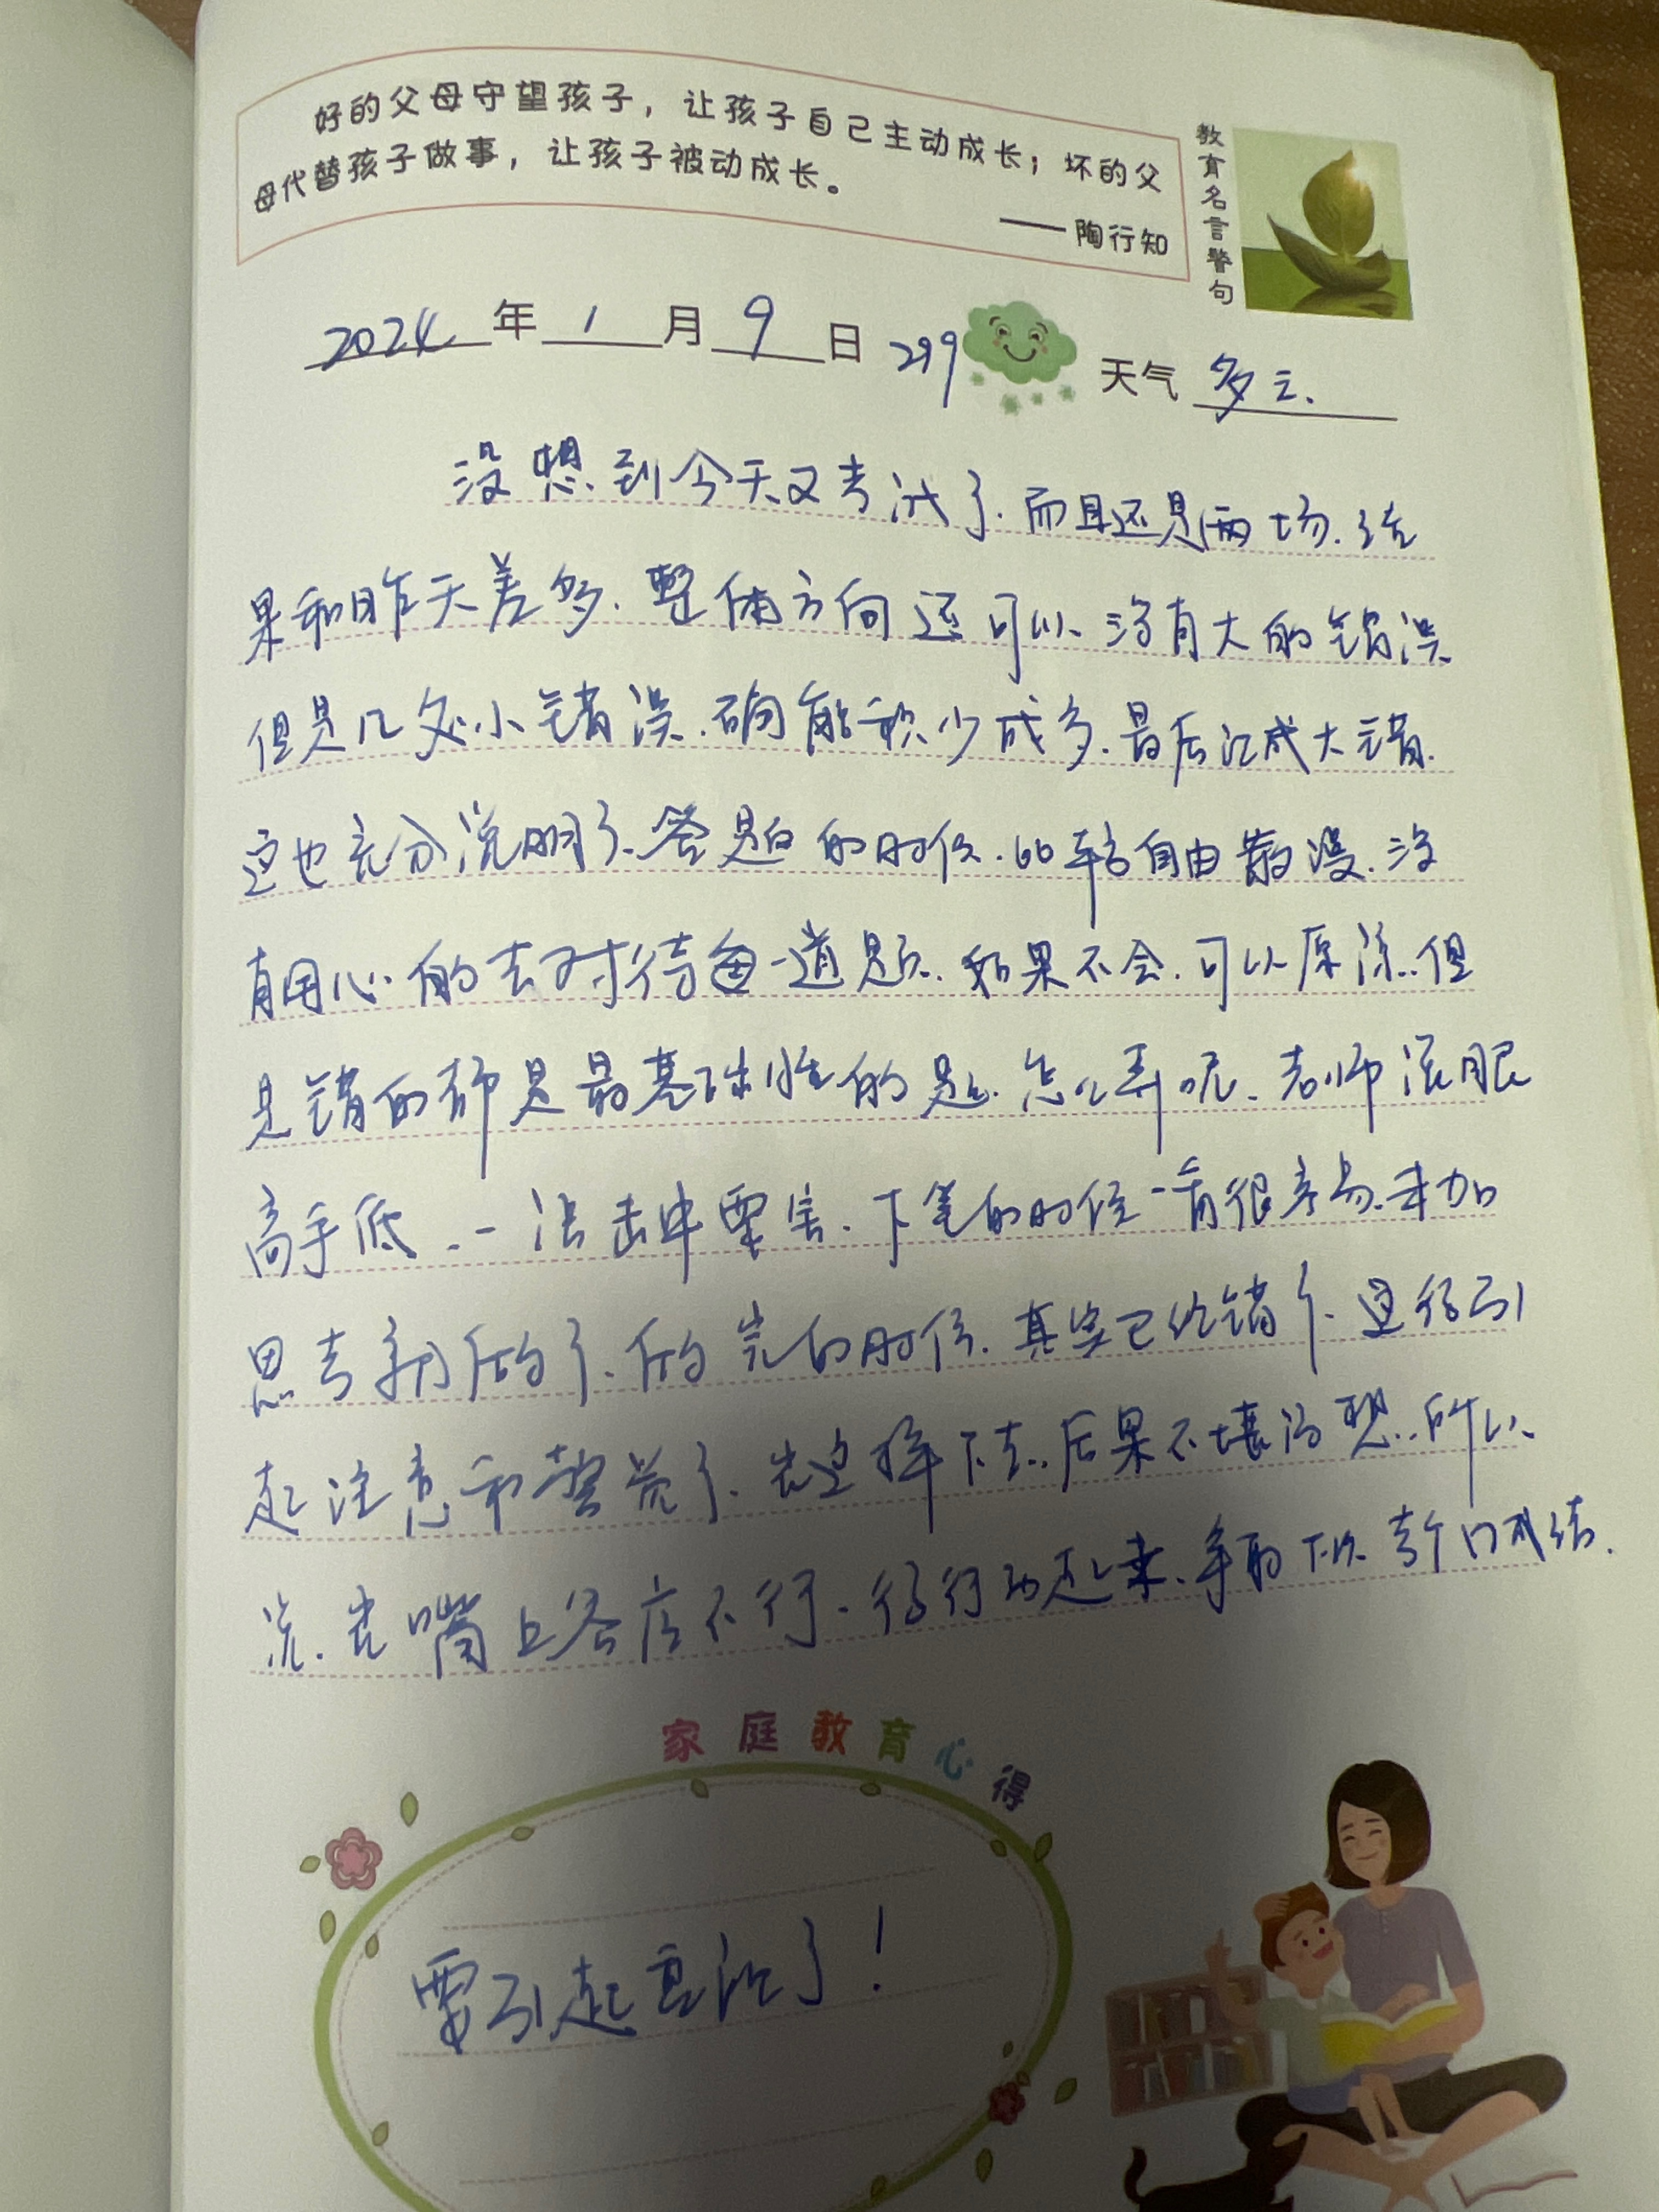 好的父母守望孩子，让孩子自己主动成长；坏的父
母代替孩子做事，让孩子被动成长。
——陶行知
教育名言警句
2024年1月9日 299 天气 多云.
没想到今天又考试了.而且还是两场.结
果和昨天差多.整体方向还可以.没有大的错误
但是几处小错误.确能积少成多.最后汇成大错.
这也充分说明了.答题的时候.比较自由散漫.没
有用心的去对待每一道题.如果不会.可以原谅.但
是错的都是最基础性的题.怎么弄呢.老师说眼
高手低.一语击中要害.下笔的时候一看很容易.未加
思考就做了.做完的时候.其实已经错了.这得引
起注意和警觉了.长这样下去.后果不堪设想.所以
说.光嘴上答应不行.得行动起来.争取下次考个好成绩.
家庭教育心得
要引起重视了！